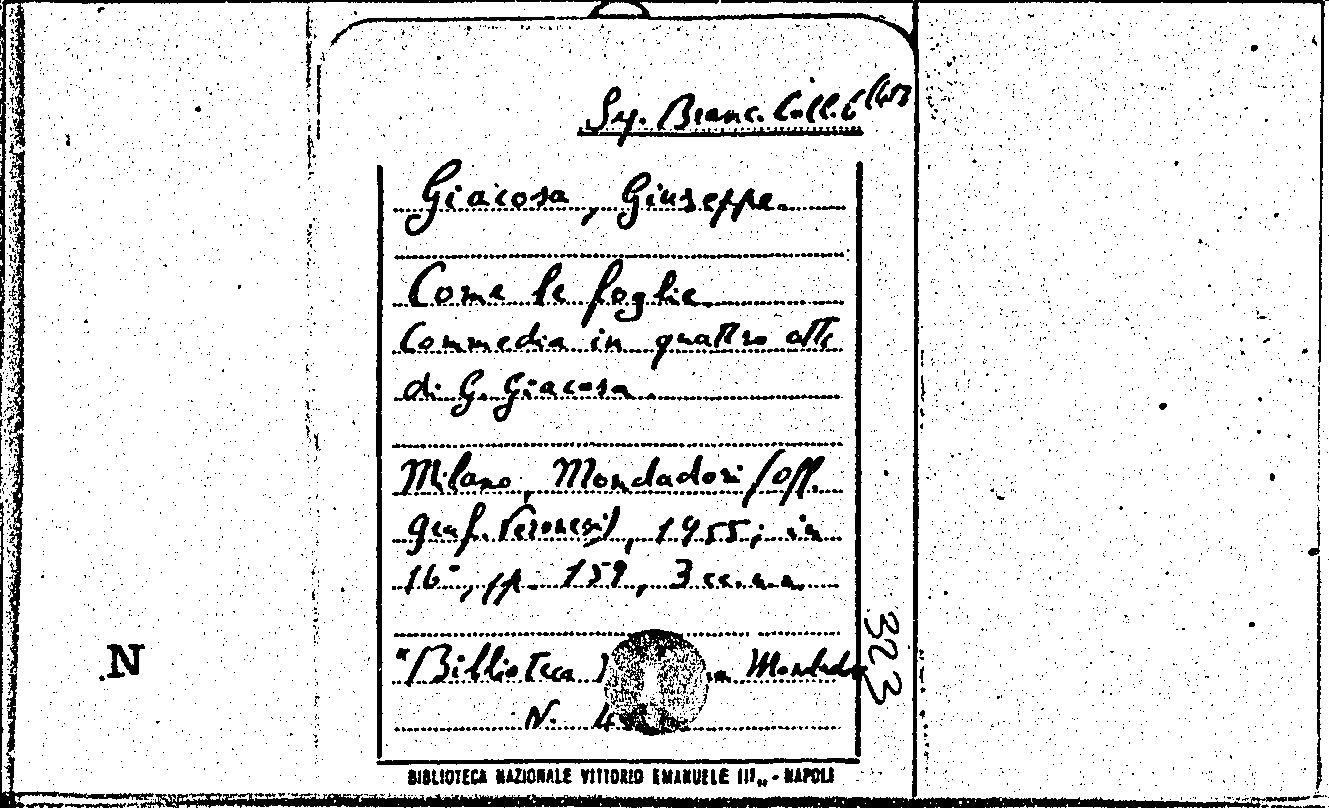 Sez. Branc. Coll. 6 (453
Giacosa, Giuseppe.
Come le foglie.
Commedia in quattro atti
di G. Giacosa.
Milano, Mondadori (off.
graf. Veronesi), 1955; in
16°, pp. 159, 3 cc.n.n.
"Biblioteca Mondado
N. 4
323
N
BIBLIOTECA NAZIONALE VITTORIO EMANUELE III„ - NAPOLI